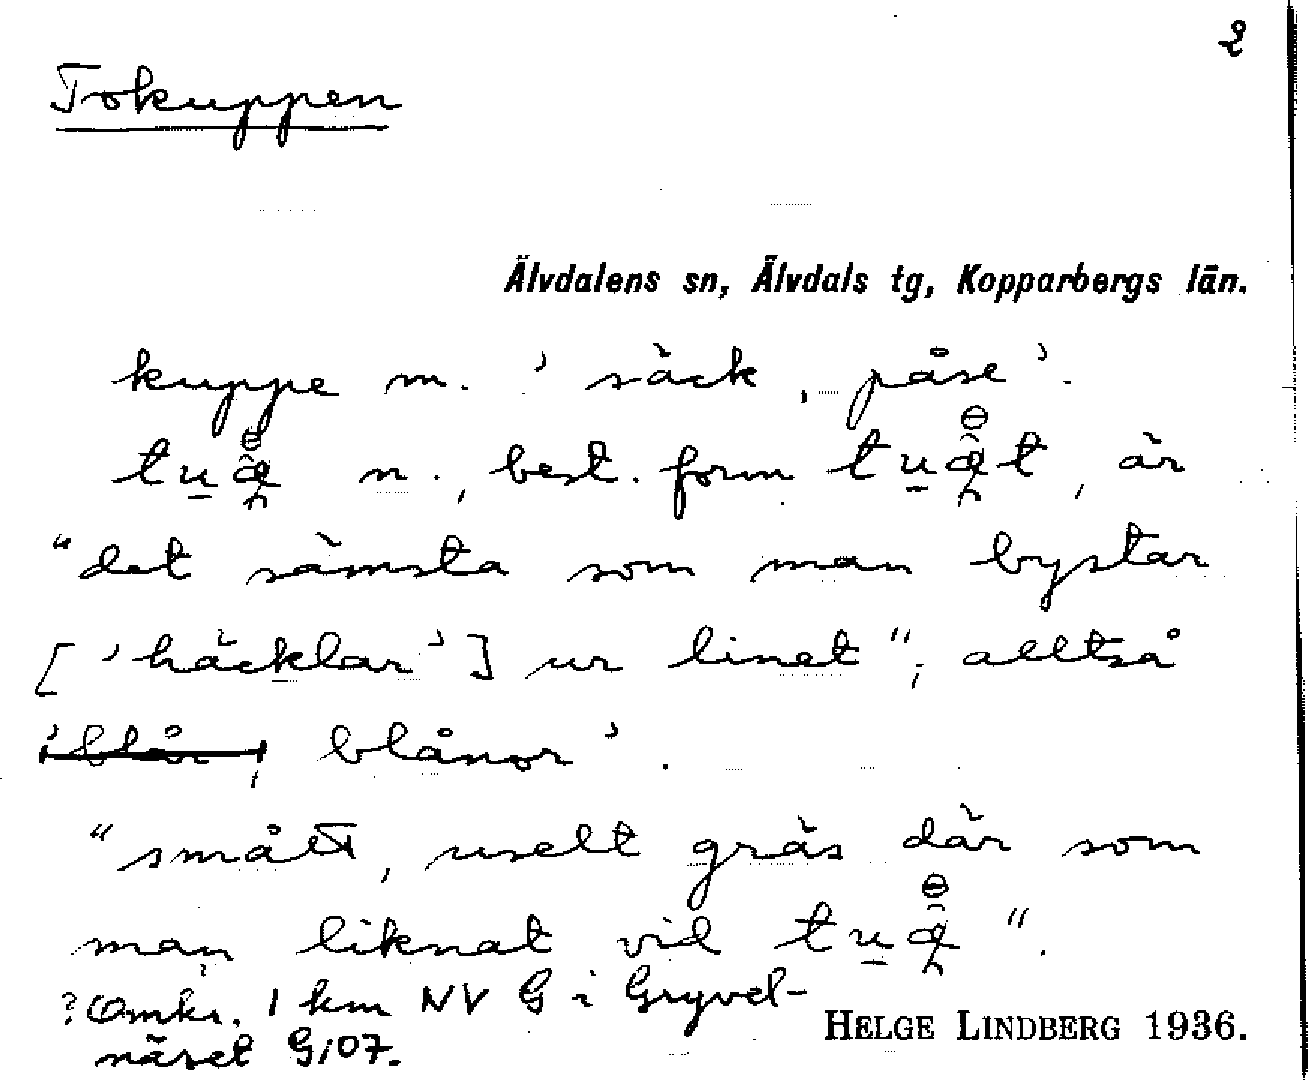 2
Tokuppen
Älvdalens sn, Älvdals tg, Kopparbergs län.
kuppe m. 'säck, påse'.
n., best. form är
"det sämsta som man bystar
['häcklar'] ur linet", alltså
blånor'.
"smått, uselt gräs där som
man liknat vid ".
? Omkr. 1 km NV G i Gryvel-
näset G,07.
HELGE LINDBERG 1936.